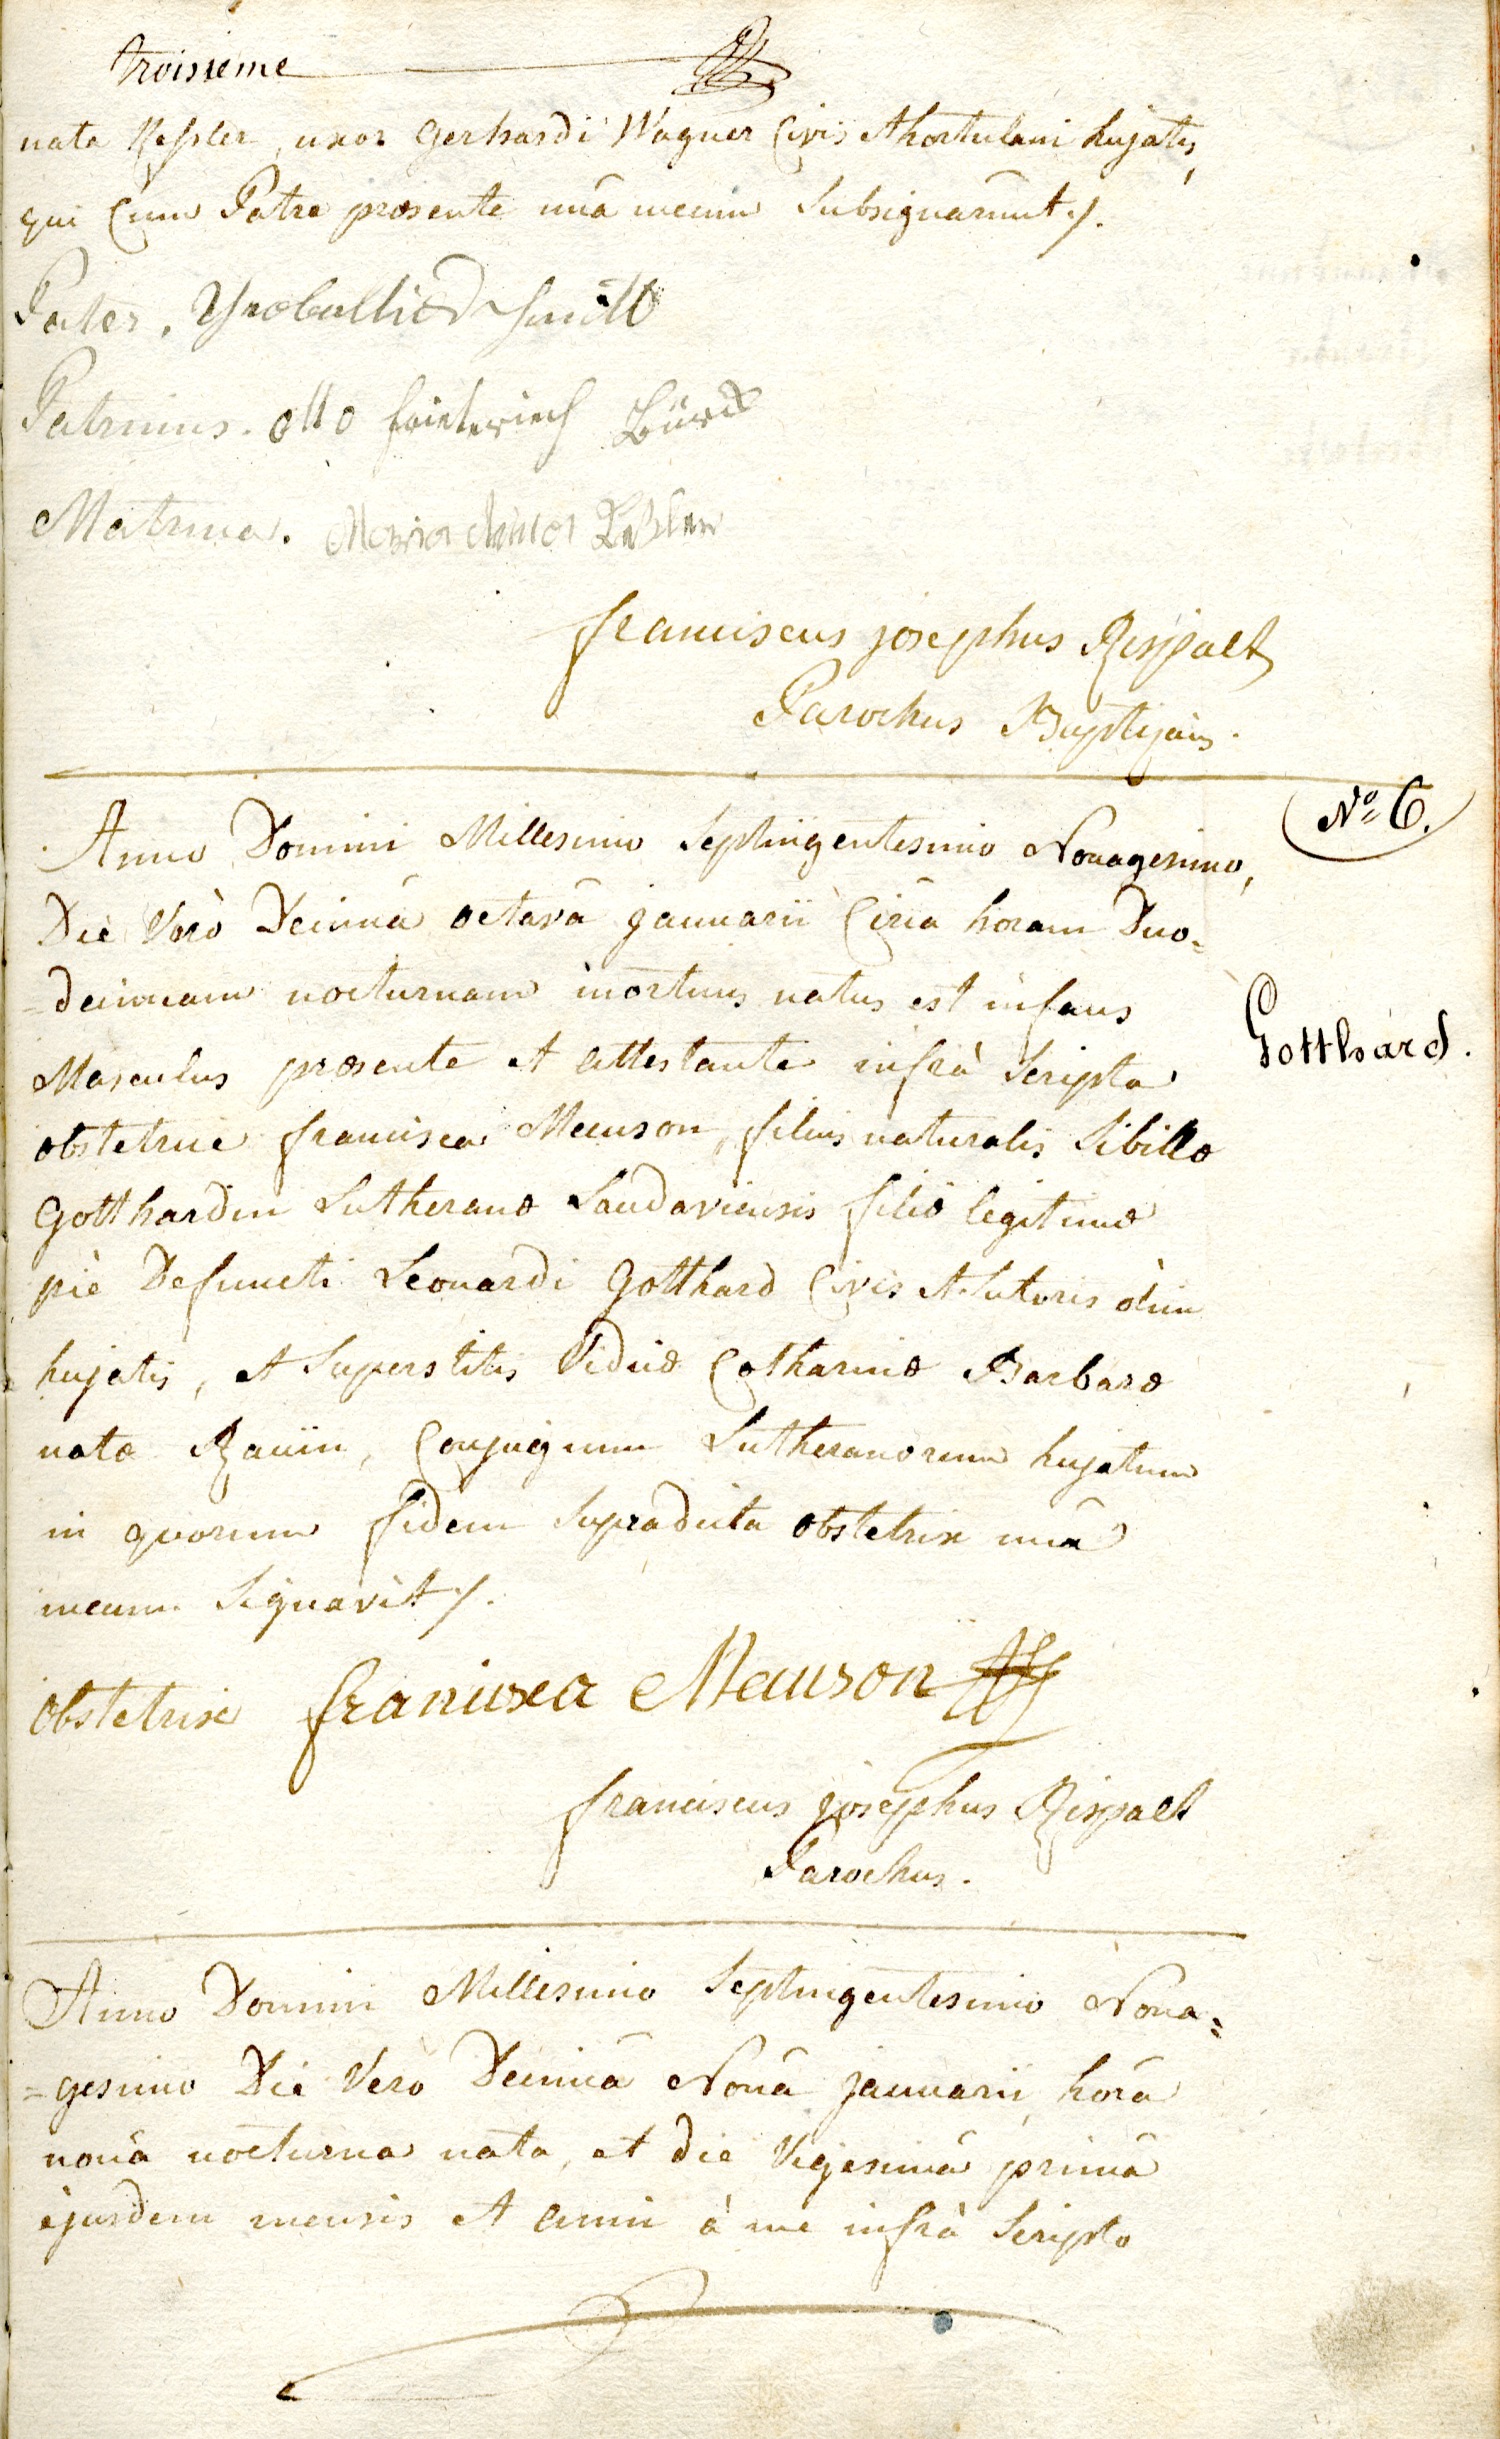 troisieme
nata Kessler, uxor Gerhardi Wagner Civis et hortulani hujatis,
qui Cum Patre præsente unâ mecum Subsignarunt ./.
Pater.
Patrinus. Otto frieterich Bürck
Matrina. Maria Anna Keßler
franciscus josephus Rispalt
Parochus Baptizans.
Anno Domini Millesimo Septingentesimo Nonagesimo,
Nº 6.
Die Verò Decimâ octavâ januarii Circa horam Duo=
=decimam nocturnam mortuus natus est infans
Gotthard.
Masculus præsente et attestante infrà Scripta
obstetrice francisca Meuson, filius naturalis Sibillæ
Gotthardin Lutheranæ Landaviensis filiæ legitimæ
piè Defuncti Leonardi Gotthard Civis et Sutoris olim
hujatis, et Superstitis Viduæ Catharinæ Barbaræ
natæ Rauin, Conjugum Lutheranorum hujatum
in quorum fidem Supradicta obstetrix unâ
mecum Signavit ./.
obstetrix francisca Meuson
franciscus josephus Rispalt
Parochus.
Anno Domini Millesimo Septingentesimo Nona=
=gesimo Die Verò Decimâ Nonâ januarii horâ
nonâ nocturna nata, et die Vigesimâ primâ
ejusdem mensis et anni à me infrà Scripto